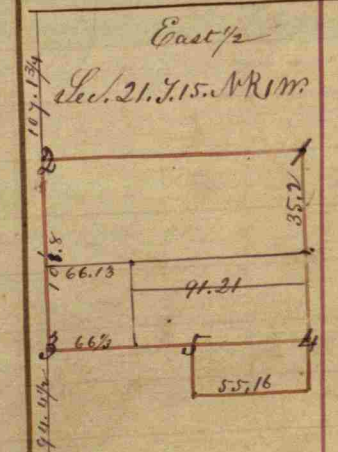 East 1/2
Sec. 21. T. 15. N R 1 W.
107.13/4
2
1
35.2
108.8
66.13
91.21
3
66 2/3
5
4
55.16
94.4 1/2